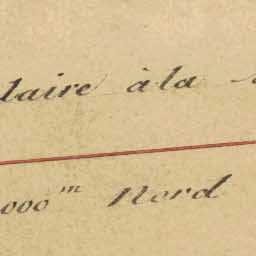 laire à la
000m Nord